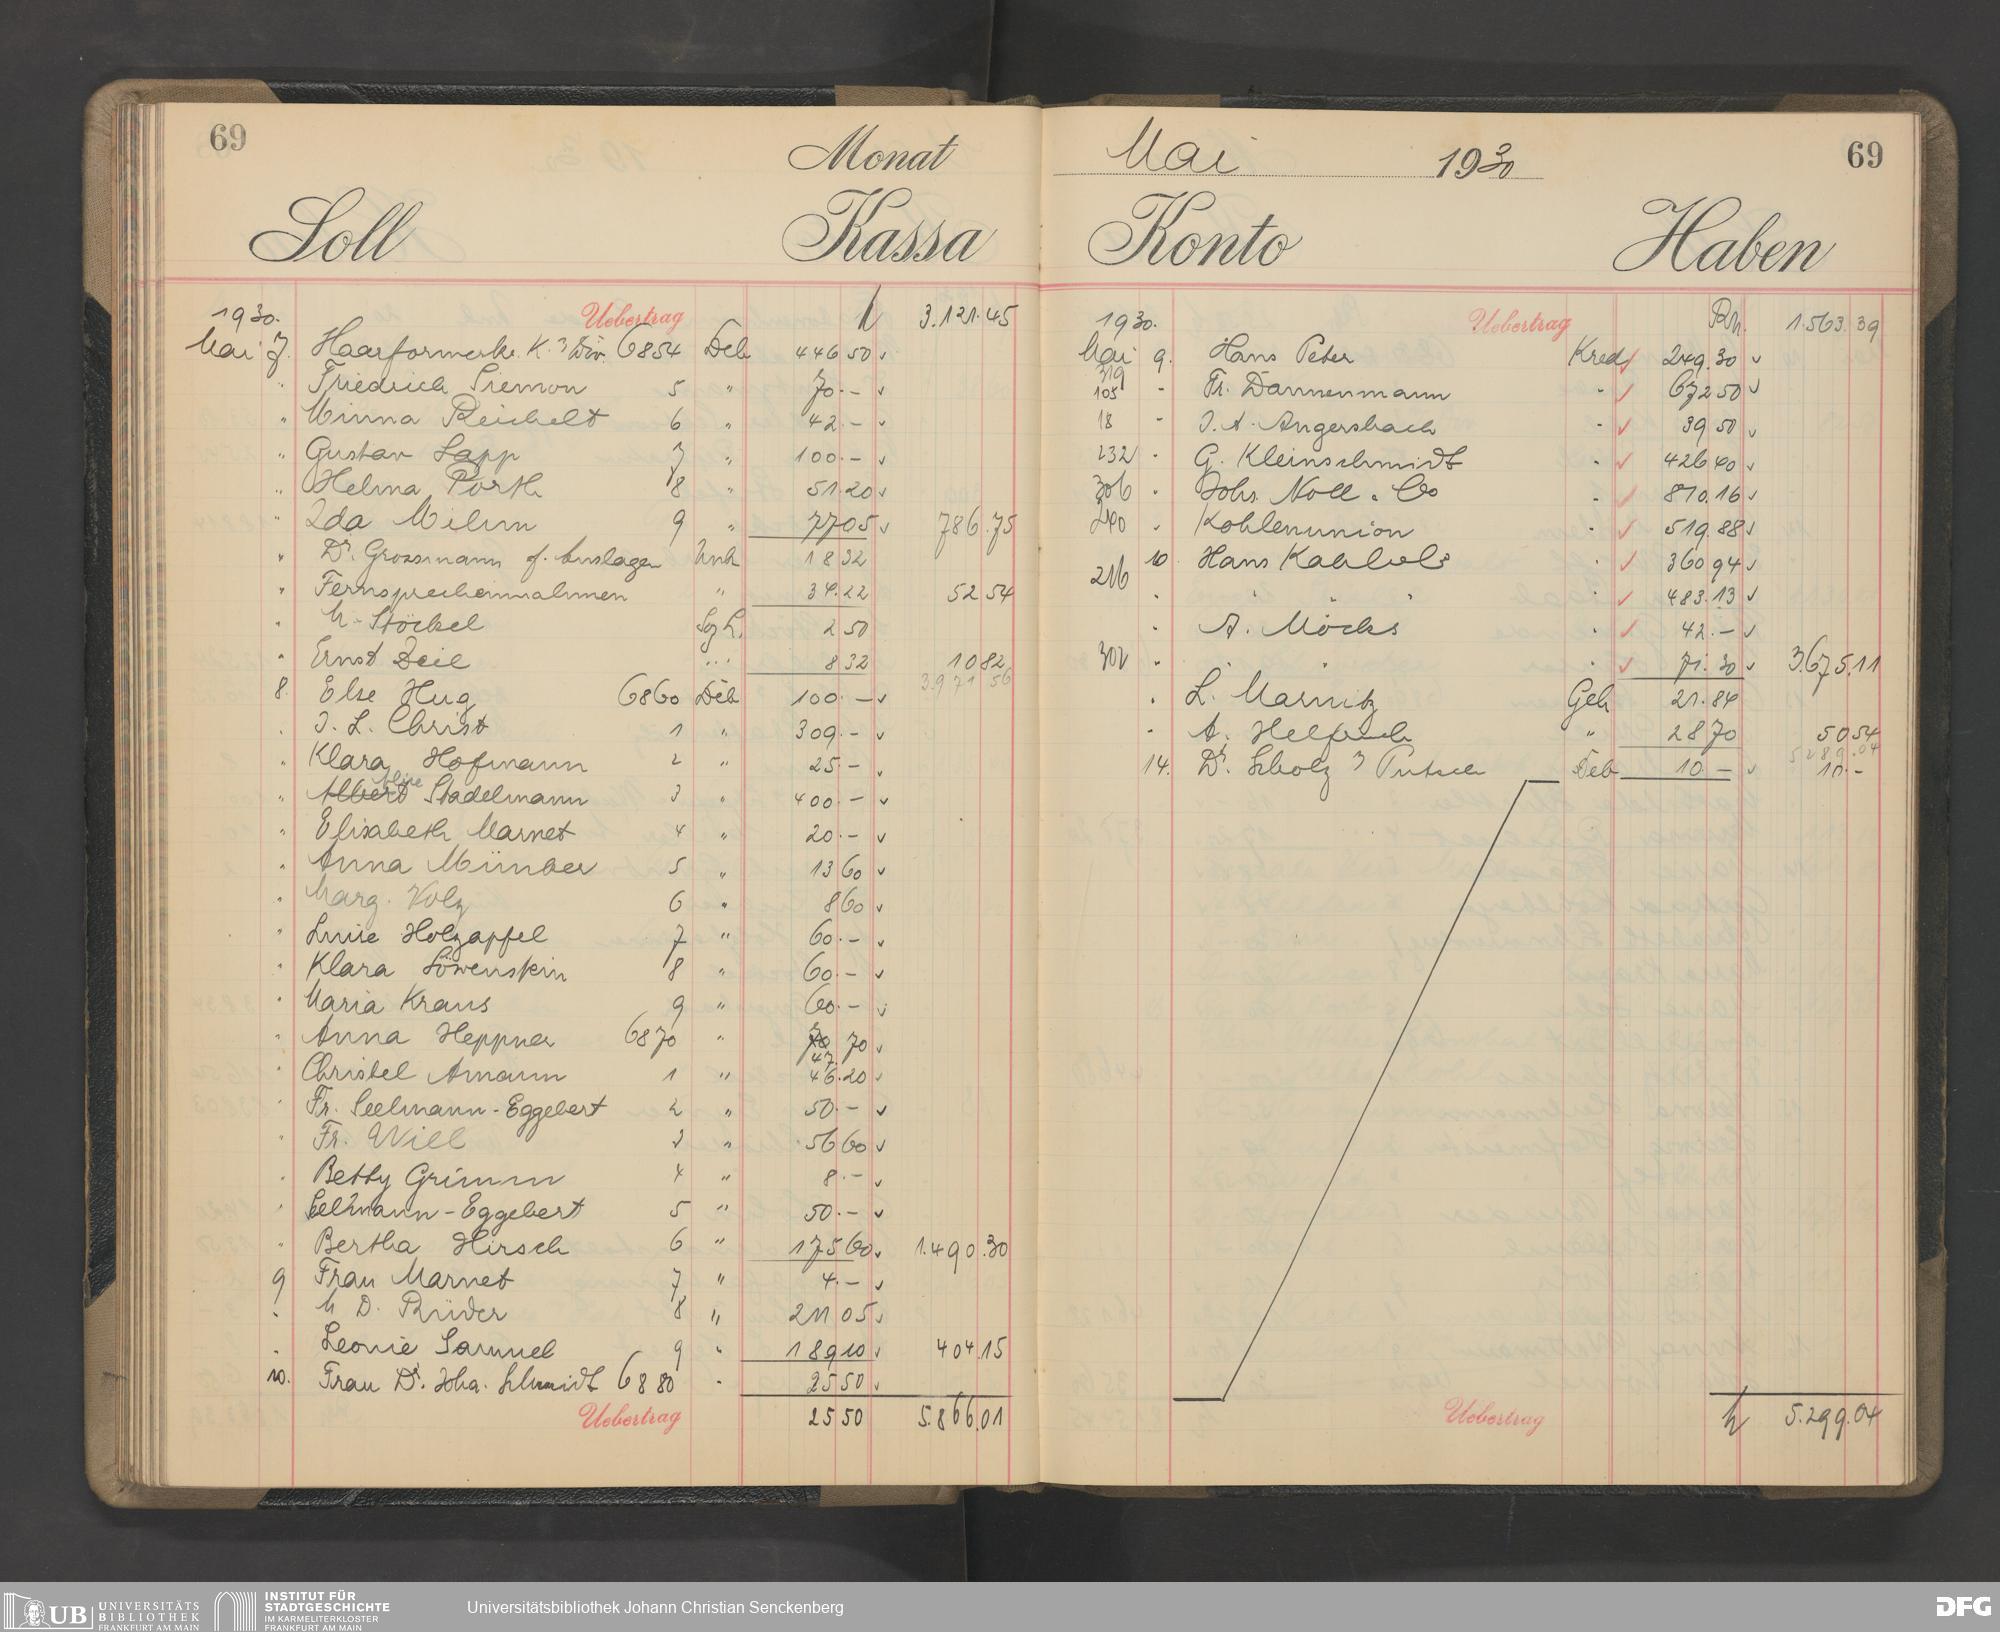 69
Monat
Soll Kassa
1930. Uebertrag 3.121.45
Mai 7. Haarformerke K. Div. 6854 Deb 446 50
" Friedrich Siemon 5 " 70.–
" Minna Reichelt 6 " 42.–
" Gustav Sapp 7 " 100.–
" Helma Porth 8 " 51.20
" Ida Milun 9 " 77 05 786.75
" Dr. Grossmann f. Auslagen Unk 18 32
" Fernsprecheinnahmen " 34.22 52 54
" M. Stöckel 2 50
" Ernst Deil " 8 32 10 82
3.971 56
8. Else Hug 6860 Deb 100.–
" J. L. Christ 1 " 309.–
" Klara Hofmann 2 " 25.–
" Albert Stadelmann 3 " 400.–
" Elisabeth Marnet 4 " 20.–
" Anna Münker 5 " 13 60
" Marg. Volz 6 " 8 60
" Luise Holzapfel 7 " 60.–
" Klara Löwenstein 8 " 60.–
" Maria Kraus 9 " 60.–
" Anna Heppner 6870 " 47 70
" Christel Amann 1 " 46.20
" Fr. Seelmann-Eggebert 2 " 50.–
" Fr. Will 3 " 56 60
" Betty Grimm 4 " 8.–
" Seelmann-Eggebert 5 " 50.–
" Bertha Hirsch 6 " 175 60 1.490.30
9 Frau Marnet 7 " 4.–
" D. Rüder 8 " 211 05
" Leonie Samuel 9 " 189 10 404.15
10. Frau Dr. Joha. Schmidt 6880 " 25 50
Uebertrag 25 50 5.866.01
Mai 1930
69
Konto Haben
1930. Uebertrag 1.563.39
Mai 9. Hans Peter Kred 249.30
319
105 " Fr. Dannenmann " 672 50
18 " J. A. Angersbach " 39 50
232 " G. Kleinschmidt " 426 40
306 " Johs. Noll & Co " 810.16
240 " Kohlenunion " 519.88
10. Hans Kahlols " 360 94
216 " " " " 483.13
" A. Möcks " 42.–
302 " " " 71.30 3.675.11
" L. Marnitz Geh 21.84
" A. Helfrich " 28 70 50 54
5289.04
14. Dr. Scholz & Putsch Deb 10.– 10.–
Uebertrag 5.299.04
UB UNIVERSITÄTS
BIBLIOTHEK
FRANKFURT AM MAIN
INSTITUT FÜR
STADTGESCHICHTE
IM KARMELITERKLOSTER
FRANKFURT AM MAIN
Universitätsbibliothek Johann Christian Senckenberg
DFG